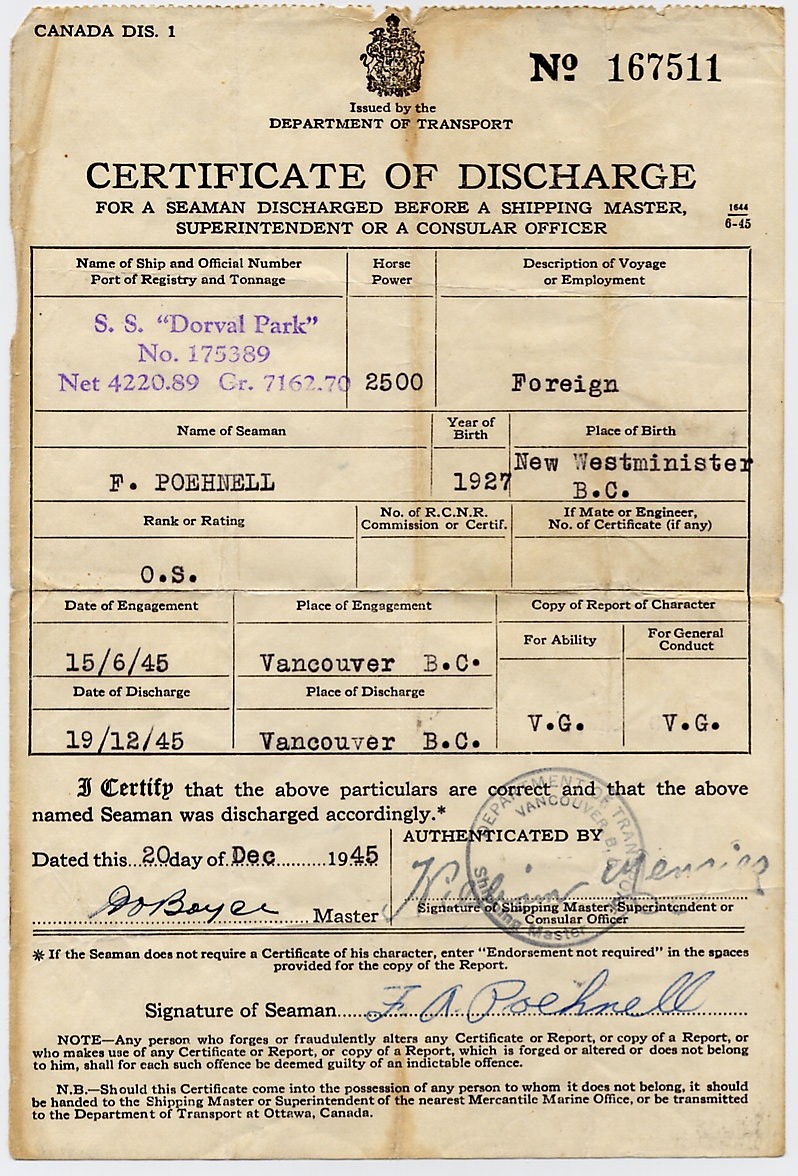 CANADA DIS. 1
Nº 167511
Issued by the
DEPARTMENT OF TRANSPORT
CERTIFICATE OF DISCHARGE
FOR A SEAMAN DISCHARGED BEFORE A SHIPPING MASTER,
SUPERINTENDENT OR A CONSULAR OFFICER
1644
6-45
Name of Ship and Official Number
Port of Registry and Tonnage
Horse
Power
Description of Voyage
or Employment
S. S. "Dorval Park"
No. 175389
Net 4220.89 Gr. 7162.70
2500
Foreign
Name of Seaman
Year of
Birth
Place of Birth
F. POEHNELL
1927
New Westminister
B.C.
Rank or Rating
No. of R.C.N.R.
Commission or Certif.
If Mate or Engineer,
No. of Certificate (if any)
O.S.
Date of Engagement
Place of Engagement
Copy of Report of Character
For Ability
For General
Conduct
15/6/45
Vancouver B.C.
Date of Discharge
Place of Discharge
V.G.
V.G.
19/12/45
Vancouver B.C.
I Certify that the above particulars are correct and that the above
named Seaman was discharged accordingly.*
Dated this...20day of.Dec..........1945
AUTHENTICATED BY
DEPARTMENT OF TRANSPORT
VANCOUVER, B.
Shipping Master
Boyce Master
Signature of Shipping Master, Superintendent or
Consular Officer
* If the Seaman does not require a Certificate of his character, enter "Endorsement not required" in the spaces
provided for the copy of the Report.
Signature of Seaman.....F. A. Poehnell
NOTE—Any person who forges or fraudulently alters any Certificate or Report, or copy of a Report, or
who makes use of any Certificate or Report, or copy of a Report, which is forged or altered or does not belong
to him, shall for each such offence be deemed guilty of an indictable offence.
N.B.—Should this Certificate come into the possession of any person to whom it does not belong, it should
be handed to the Shipping Master or Superintendent of the nearest Mercantile Marine Office, or be transmitted
to the Department of Transport at Ottawa, Canada.